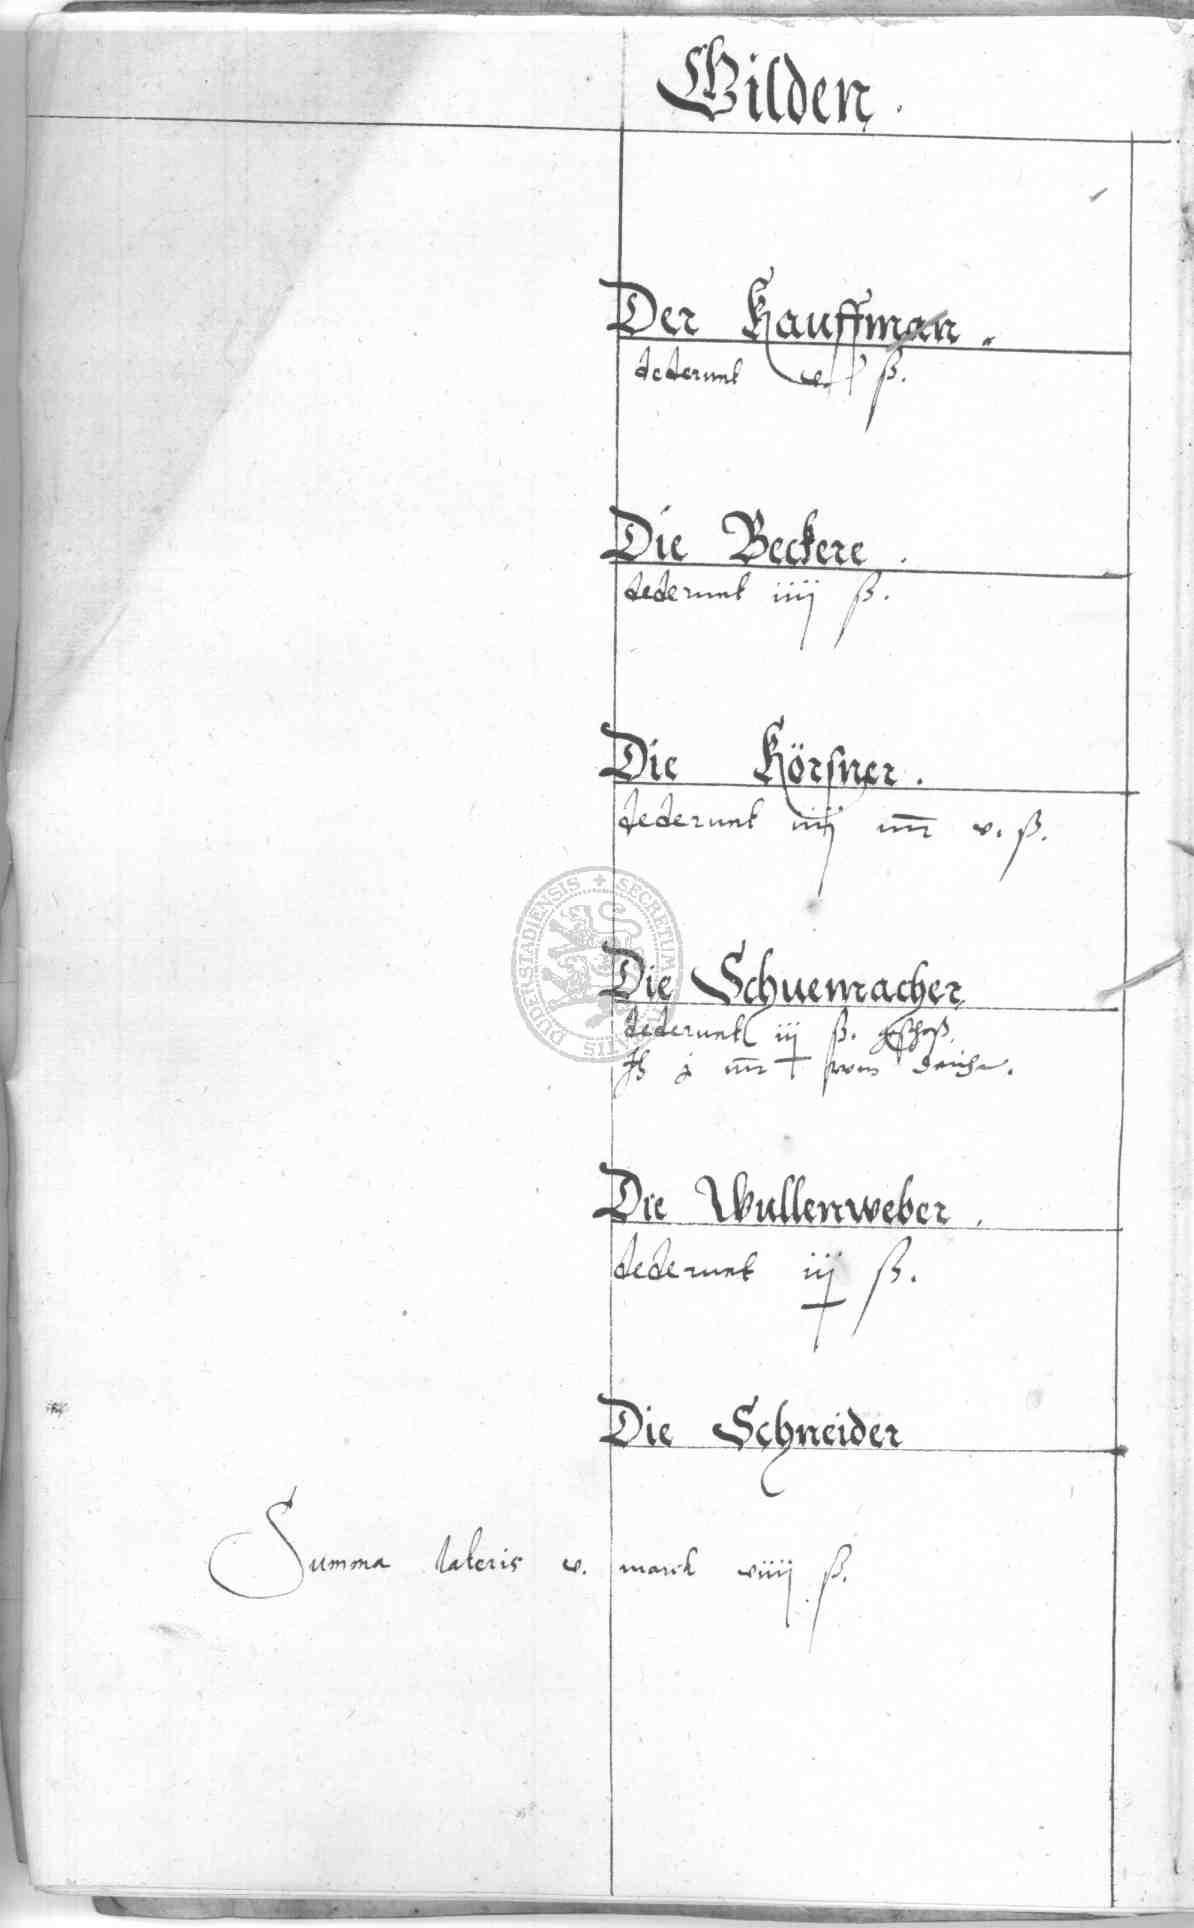 Gilden.
Der Kauffman.
dederunt ß.
Die Beckere.
dederunt iiij ß.
Die Körsner.
dederunt iiij mr v. ß.
Die Schuemacher
dederunt iij ß. geschoß
j mr vom
Die Wullenweber.
dederunt iij ß.
Die Schneider
Summa lateris v. marck viiij ß.
SECRETUM DUDERSTADIENSIS